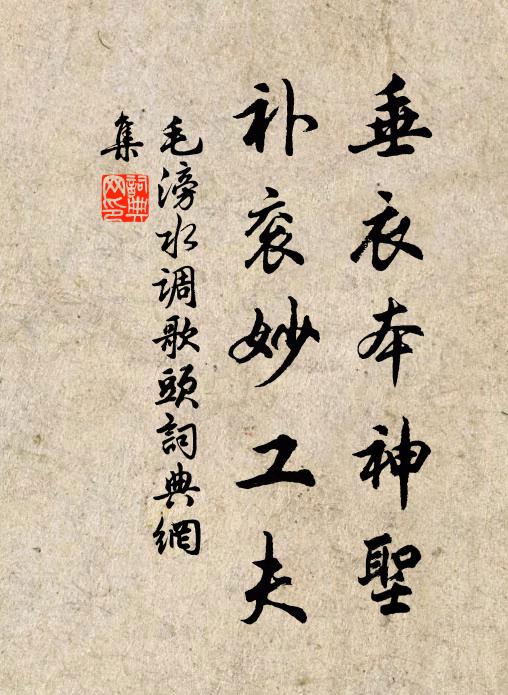 垂衣本神聖
补衮妙工夫
毛滂水调歌頭詞典網
集
詞典
网印